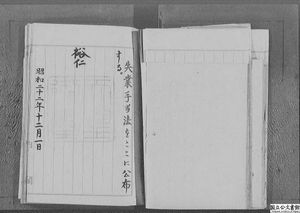 失業手当法をここに公布
する。
裕仁
昭和二十二年十二月一日
国立公文書館